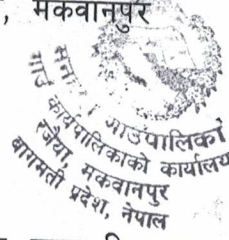 , मकवानपुर
गाउँपालिका
गाउँ कार्यपालिकाको कार्यालय
रजैया, मकवानपुर
बागमती प्रदेश, नेपाल